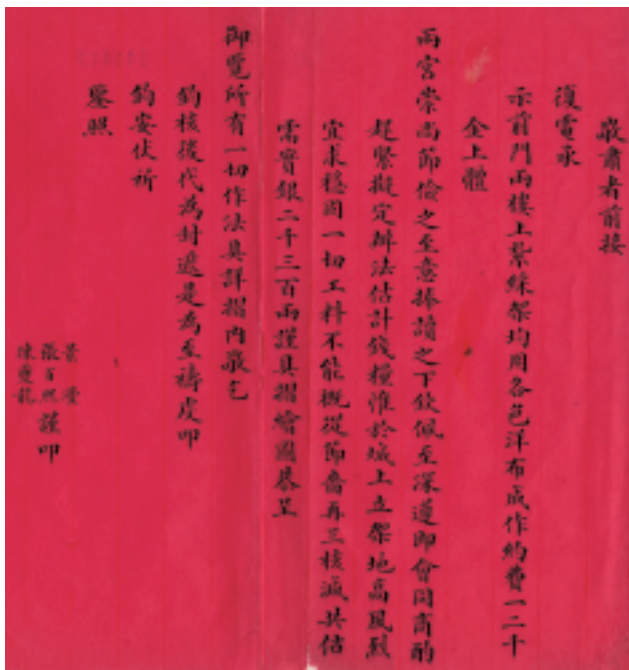 敬肅者前接
復電承
示前門兩樓上紮綵架均用各色洋布成作約費一二千
金上體
兩宮崇尚節儉之至意捧讀之下欽佩至深遵即會同商酌
趕緊擬定辦法估計錢糧惟於城上立架地高風烈
宜求穩固一切工料不能概從節嗇再三核減共估
需實銀二千三百兩謹具摺繪圖恭呈
御覽所有一切作法具詳摺內敬乞
鈞核後代為封遞是為至禱虔叩
鈞安伏祈
鑒照
景灃
張百熙
陳夔龍
謹叩